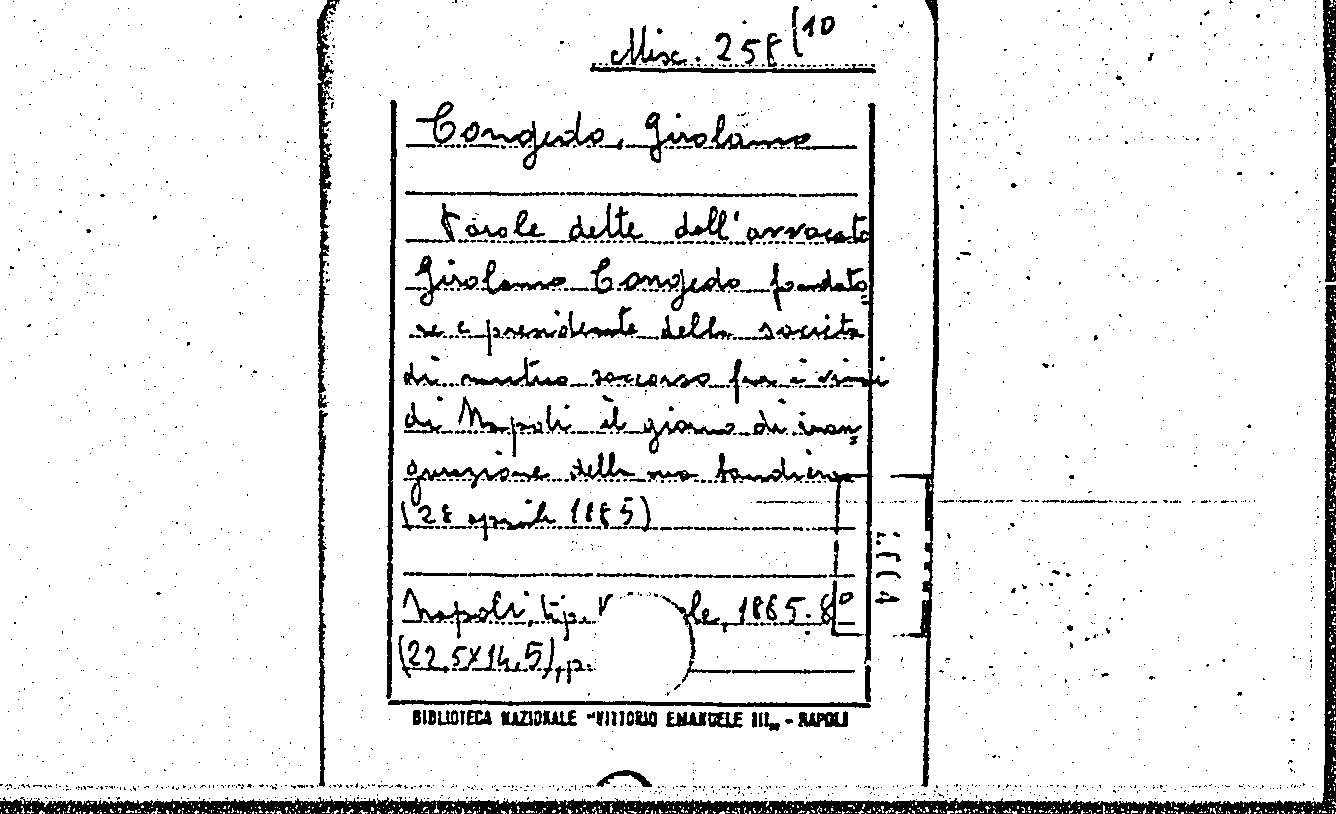 Misc. 258(10
Congedo, Girolamo
Parole dette dall'avvocato
Girolamo Congedo fondato=
re e presidente della società
di mutuo soccorso fra i
di Napoli il giorno di inau=
gurazione della sua bandiera
(28 aprile 1885)
Napoli, tip. 1885. 8°
(22,5X14,5), p.
BIBLIOTECA NAZIONALE "VITTORIO EMANUELE III„ - NAPOLI